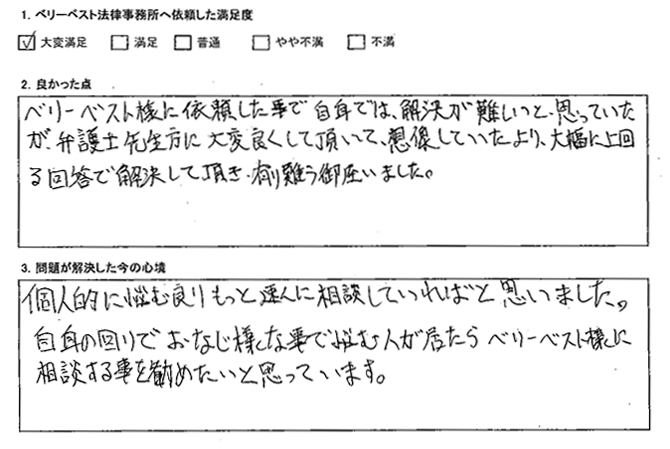 1. ベリーベスト法律事務所へ依頼した満足度
☑ 大変満足 □ 満足 □ 普通 □ やや不満 □ 不満
2. 良かった点
ベリーベスト様に依頼した事で自身では、解決が難しいと思っていた
が、弁護士先生方に大変良くして頂いて、想像していたより、大幅に上回
る回答で解決して頂き、有り難う御座いました。
3. 問題が解決した今の心境
個人的に悩む良りもっと速くに相談していればと思いました。
自身の回りでおなじ様な事で悩む人が居たらベリーベスト様に
相談する事を勧めたいと思っています。